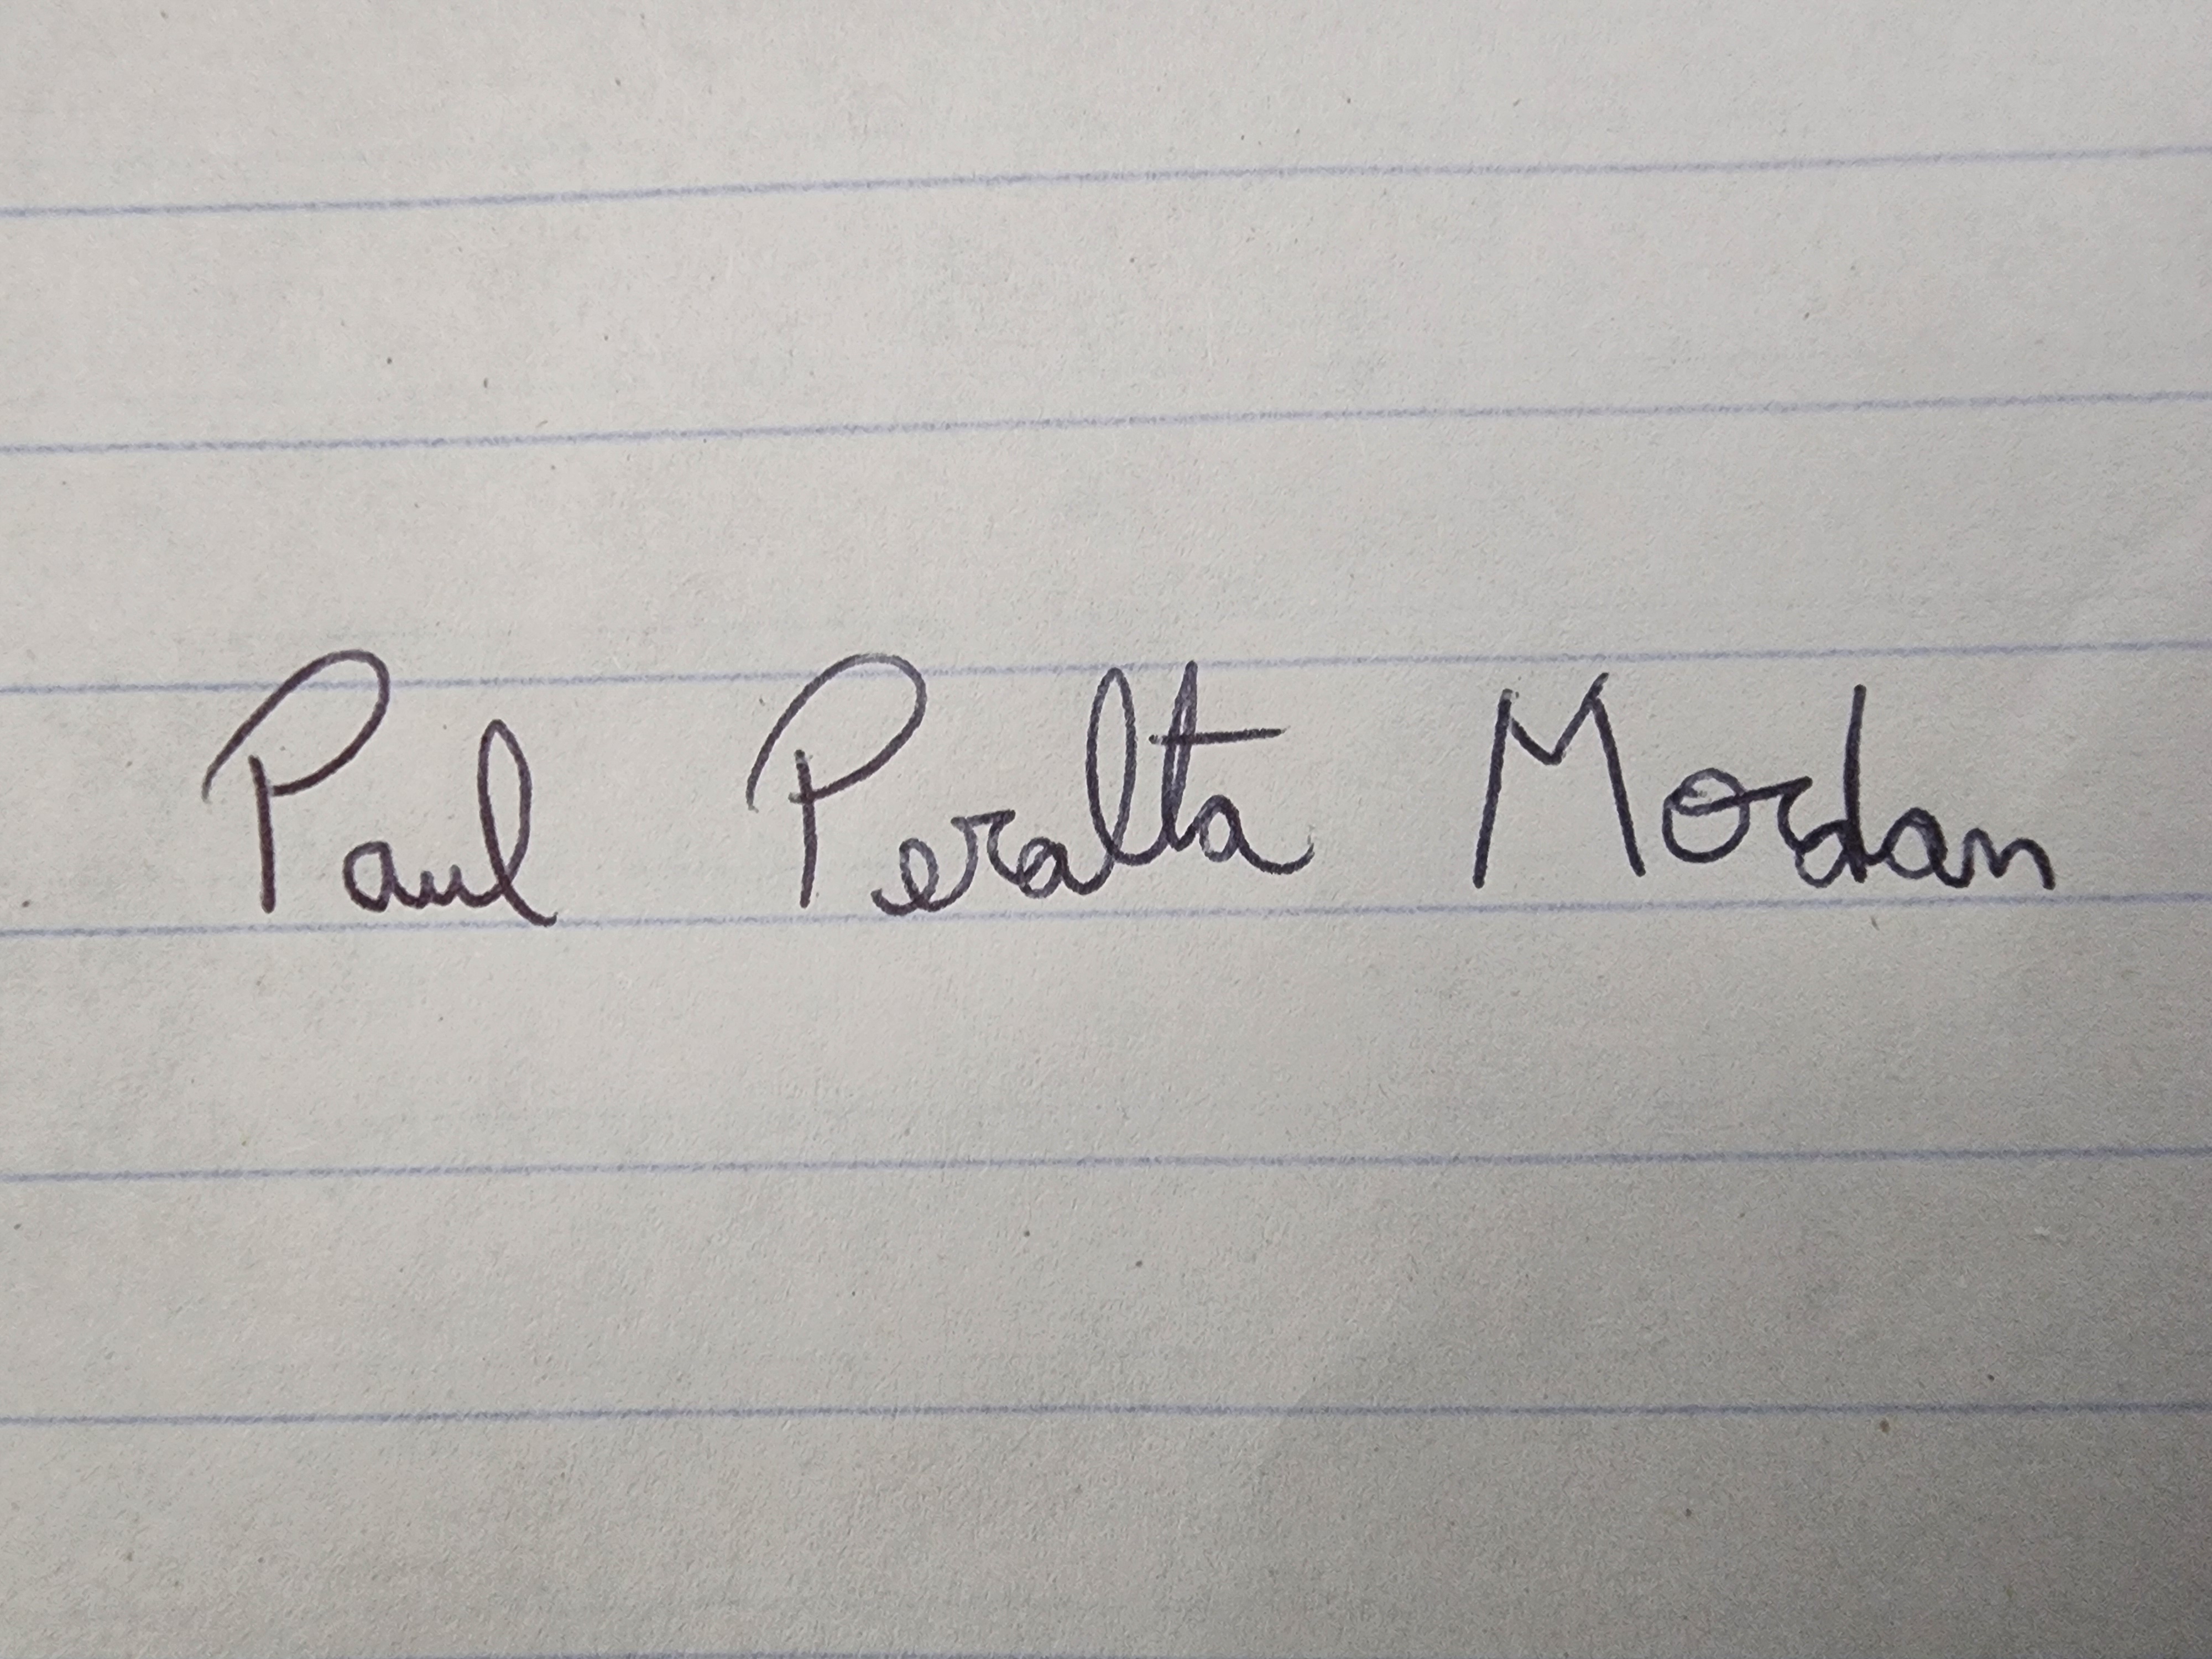 Paul Peralta Mordan